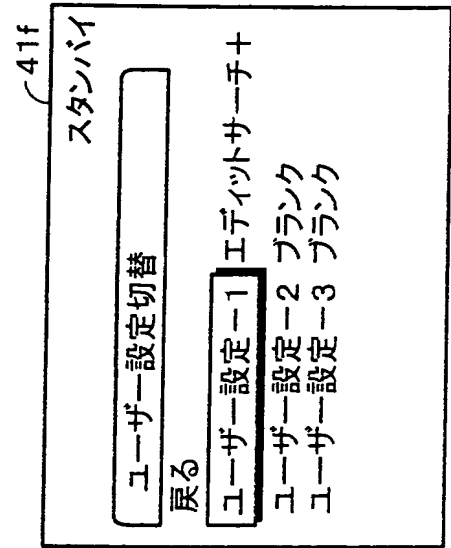 41f
スタンバイ
ユーザー設定切替
戻る
ユーザー設定－1 エディットサーチ＋
ユーザー設定－2 ブランク
ユーザー設定－3 ブランク